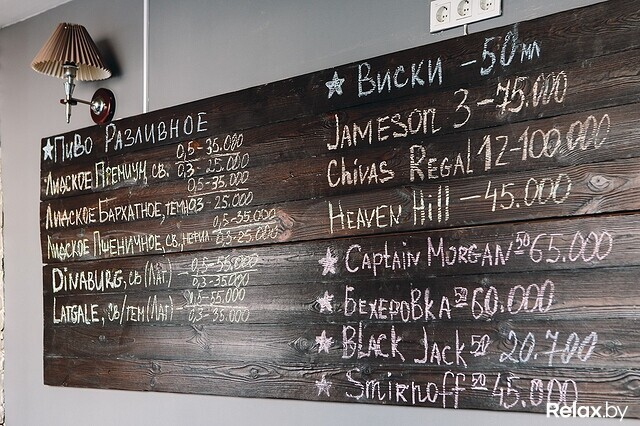 ★Пиво Разливное
Лидское Премиум, св. 0,5-35.000
0,3-25.000
Лидское Бархатное, темн. 0,5-35.000
0,3-25.000
Лидское Пшеничное, св., нефил. 0,5-35.000
0,3-25.000
Dinaburg, св (Лат) - 0,5-55.000
0,3-35.000
Latgale, св/тем (Лат) - 0,5-55.000
0,3-35.000
★ Виски - 50 мл
Jameson 3-75.000
Chivas Regal 12-100.000
Heaven Hill - 45.000
★ Captain Morgan 50 65.000
★ Бехеровка 50 60.000
★ Black Jack 50 20.700
★ Smirnoff 50 45.000
Relax.by